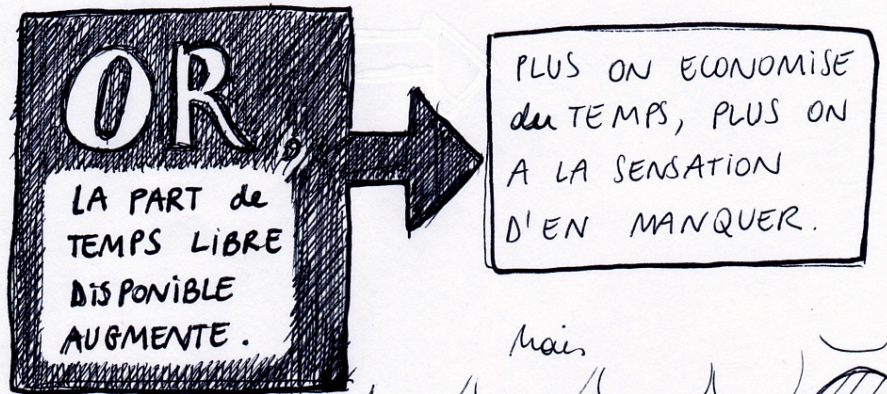 OR,
LA PART de
TEMPS LIBRE
DISPONIBLE
AUGMENTE.
PLUS ON ECONOMISE
du TEMPS, PLUS ON
A LA SENSATION
D'EN MANQUER.
Mais